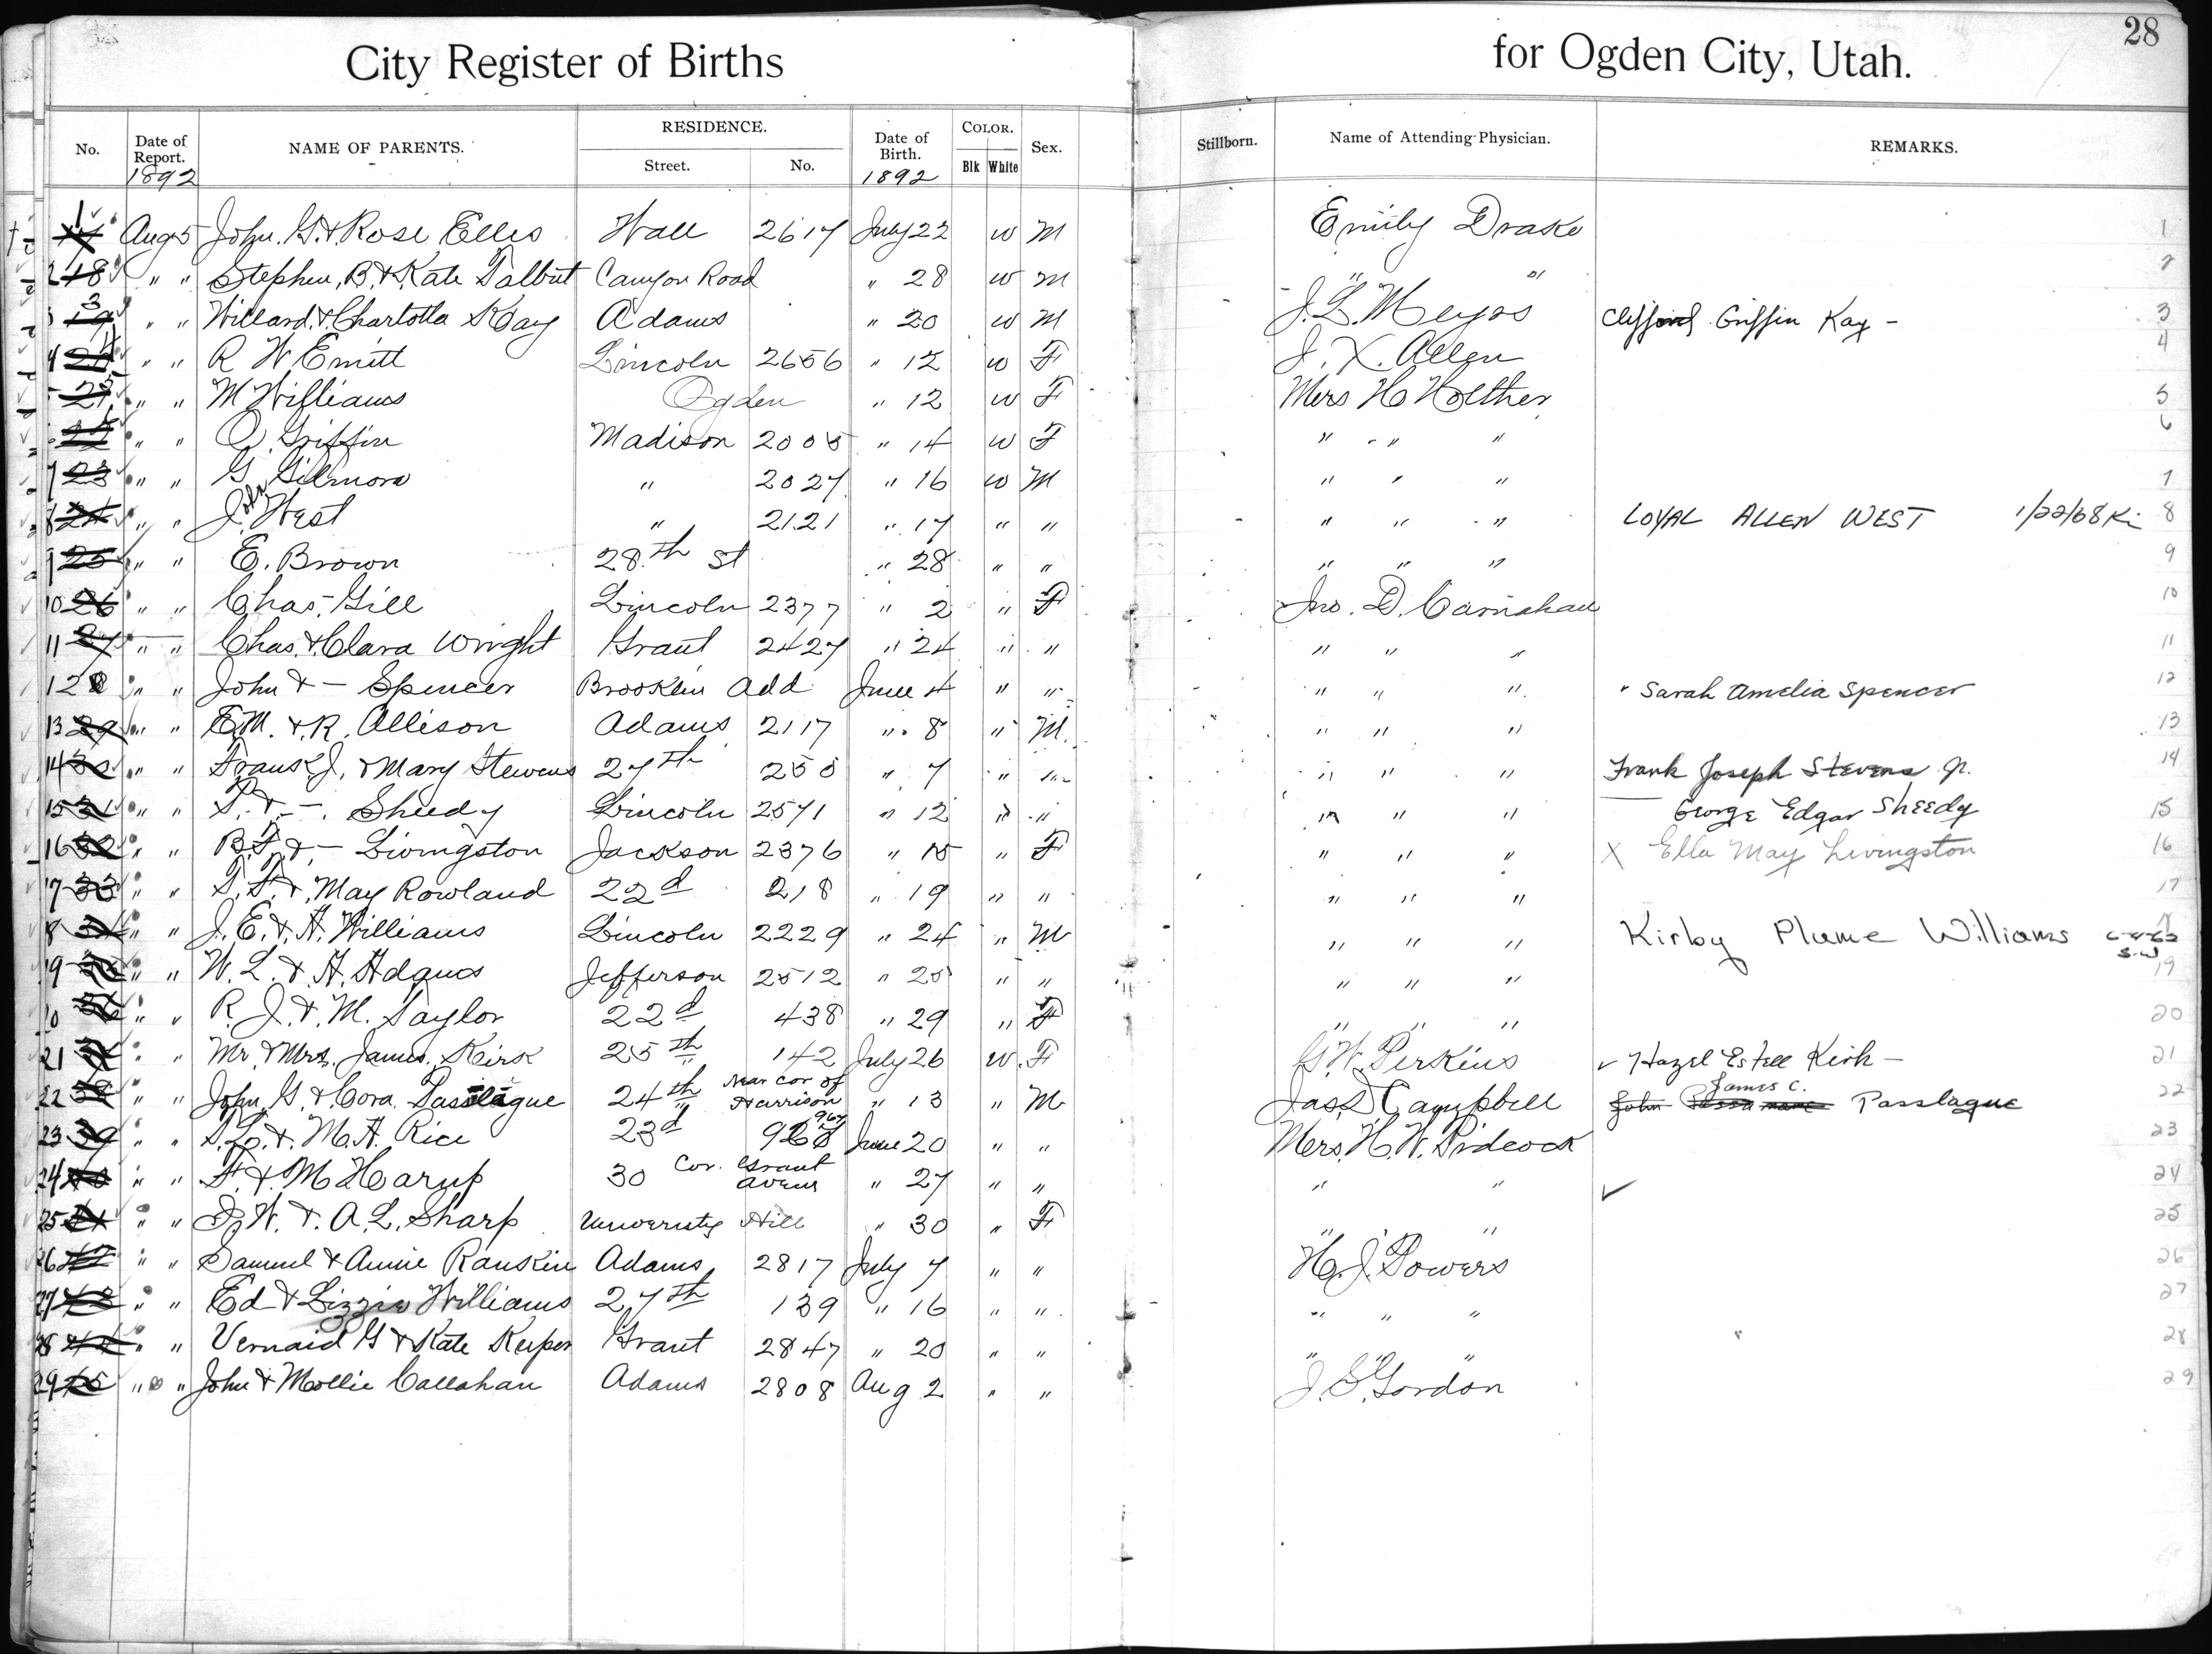 28
City Register of Births for Ogden City, Utah.
No. Date of Report. NAME OF PARENTS. RESIDENCE. Street. No. Date of Birth. COLOR. Blk White Sex. Stillborn. Name of Attending Physician. REMARKS.
1892 1892
1 Aug 5 John. G. & Rose Ellis Wall 2617 July 22 W M Emily Drake 1
2 18 " " Stephen. B. & Kate Talbut Canyon Road " 28 W M " " 2
3 19 " " Willard. & Charlotta Kay Adams " 20 W M J. L. Meyos Clifford Griffin Kay - 3
4 " " R W Emitt Lincoln 2656 " 12 W F J. X. Allen 4
21 " " M Williams Ogden " 12 W F Mers H Holther 5
22 " " O. Griffin Madison 2005 " 14 W F " " " 6
7 23 " " G Gilmore " 2027 " 16 W M " " " 7
8 24 " " John West " 2121 " 17 " " " " " LOYAL ALLEN WEST 1/22/68 8
9 25 " " E. Brown 28th St " 28 " " " " " 9
10 26 " " Chas. Gill Lincoln 2377 " 2 " F Jno. D. Carnahan 10
11 27 " " Chas. & Clara Wright Grant 2427 " 24 " " " " " 11
12 " " John & - Spencer Brooklin Add June 4 " " " " " Sarah Amelia Spencer 12
13 29 " " E.M. & R. Allison Adams 2117 " 8 " M. " " " 13
14 " " Frank J. & Mary Stevens 27th 250 " 7 " " " " " Frank Joseph Stevens Jr. 14
15 31 " " P. & -. Sheedy Lincoln 2571 " 12 " " " " " George Edgar Sheedy 15
16 32 " " B.F. & - Livingston Jackson 2376 " 15 " F " " " X Ella May Livingston 16
17 33 " " T. F. & May Rowland 22d 218 " 19 " " " " " 17
8 34 " " J. E. & A. Williams Lincoln 2229 " 24 " M " " " Kirby Plume Williams 18
19 " " W. L. & A. Adams Jefferson 2512 " 25 " " " " " 19
36 " " R. J. & M. Taylor 22d 438 " 29 " F " " " 20
21 " " Mr. & Mrs. James. Kirk 25th 142 July 26 W. F G. W. Perkins Hazel Estell Kirk - 21
22 38 " " John. G. & Cora. Passlague 24th near cor of Harrison " 13 " M Jas. D Campbell John James C. Passlague 22
23 39 " " T. L. & M. A. Rice 23d 967 June 20 " " Mers. H. W. Pidcock 23
24 40 " " F. & M Harup 30 Cor. Grant avenu " 27 " " " " 24
25 41 " " J. W. & A. L. Sharp University Hill " 30 " F " " 25
26 42 " " Samuel & Annie Rankin Adams 2817 July 7 " " H. J. Powers 26
27 43 " " Ed & Lizzie Williams 27th 139 " 16 " " " " " 27
28 44 " " Vernaid G & Kate Keiper Grant 2847 " 20 " " " " " 28
29 45 " " John & Mollie Callahan Adams 2808 Aug 2 " " J. S. Gordon 29